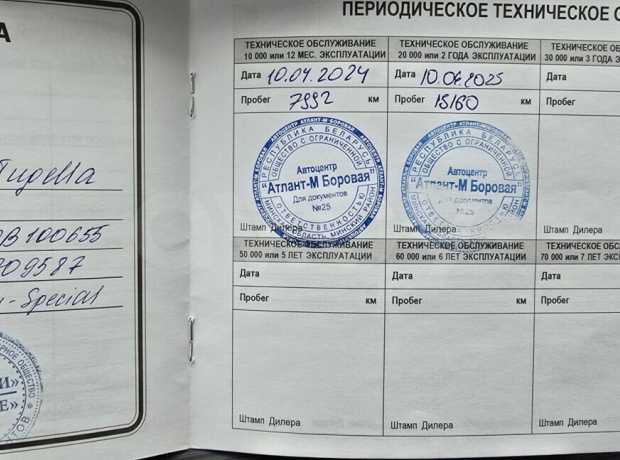 А
Tugella
B100655
09587
Special
ПЕРИОДИЧЕСКОЕ ТЕХНИЧЕСКОЕ О
ТЕХНИЧЕСКОЕ ОБСЛУЖИВАНИЕ
10 000 или 12 МЕС. ЭКСПЛУАТАЦИИ
Дата 10.04.2024
Пробег 7992 км
РЕСПУБЛИКА БЕЛАРУСЬ
ОБЩЕСТВО С ОГРАНИЧЕННОЙ
Автоцентр
Атлант-М Боровая
Для документов
№25
ОТВЕТСТВЕННОСТЬЮ
МИНСКАЯ ОБЛАСТЬ, МИНСКИЙ РАЙОН
Штамп Дилера
ТЕХНИЧЕСКОЕ ОБСЛУЖИВАНИЕ
20 000 или 2 ГОДА ЭКСПЛУАТАЦИИ
Дата 10.04.2025
Пробег 15160 км
РЕСПУБЛИКА БЕЛАРУСЬ
ОБЩЕСТВО С ОГРАНИЧЕННОЙ
Автоцентр
Атлант-М Боровая
Для документов
№25
Штамп Дилера
ТЕХНИЧЕСКОЕ
30 000 или 3 ГОДА Э
Дата
Пробег
Штамп Дилера
ТЕХНИЧЕСКОЕ ОБСЛУЖИВАНИЕ
50 000 или 5 ЛЕТ ЭКСПЛУАТАЦИИ
Дата
Пробег км
Штамп Дилера
ТЕХНИЧЕСКОЕ ОБСЛУЖИВАНИЕ
60 000 или 6 ЛЕТ ЭКСПЛУАТАЦИИ
Дата
Пробег км
Штамп Дилера
ТЕХНИЧЕСКОЕ
70 000 или 7 ЛЕТ ЭКС
Дата
Пробег
Штамп Дилера